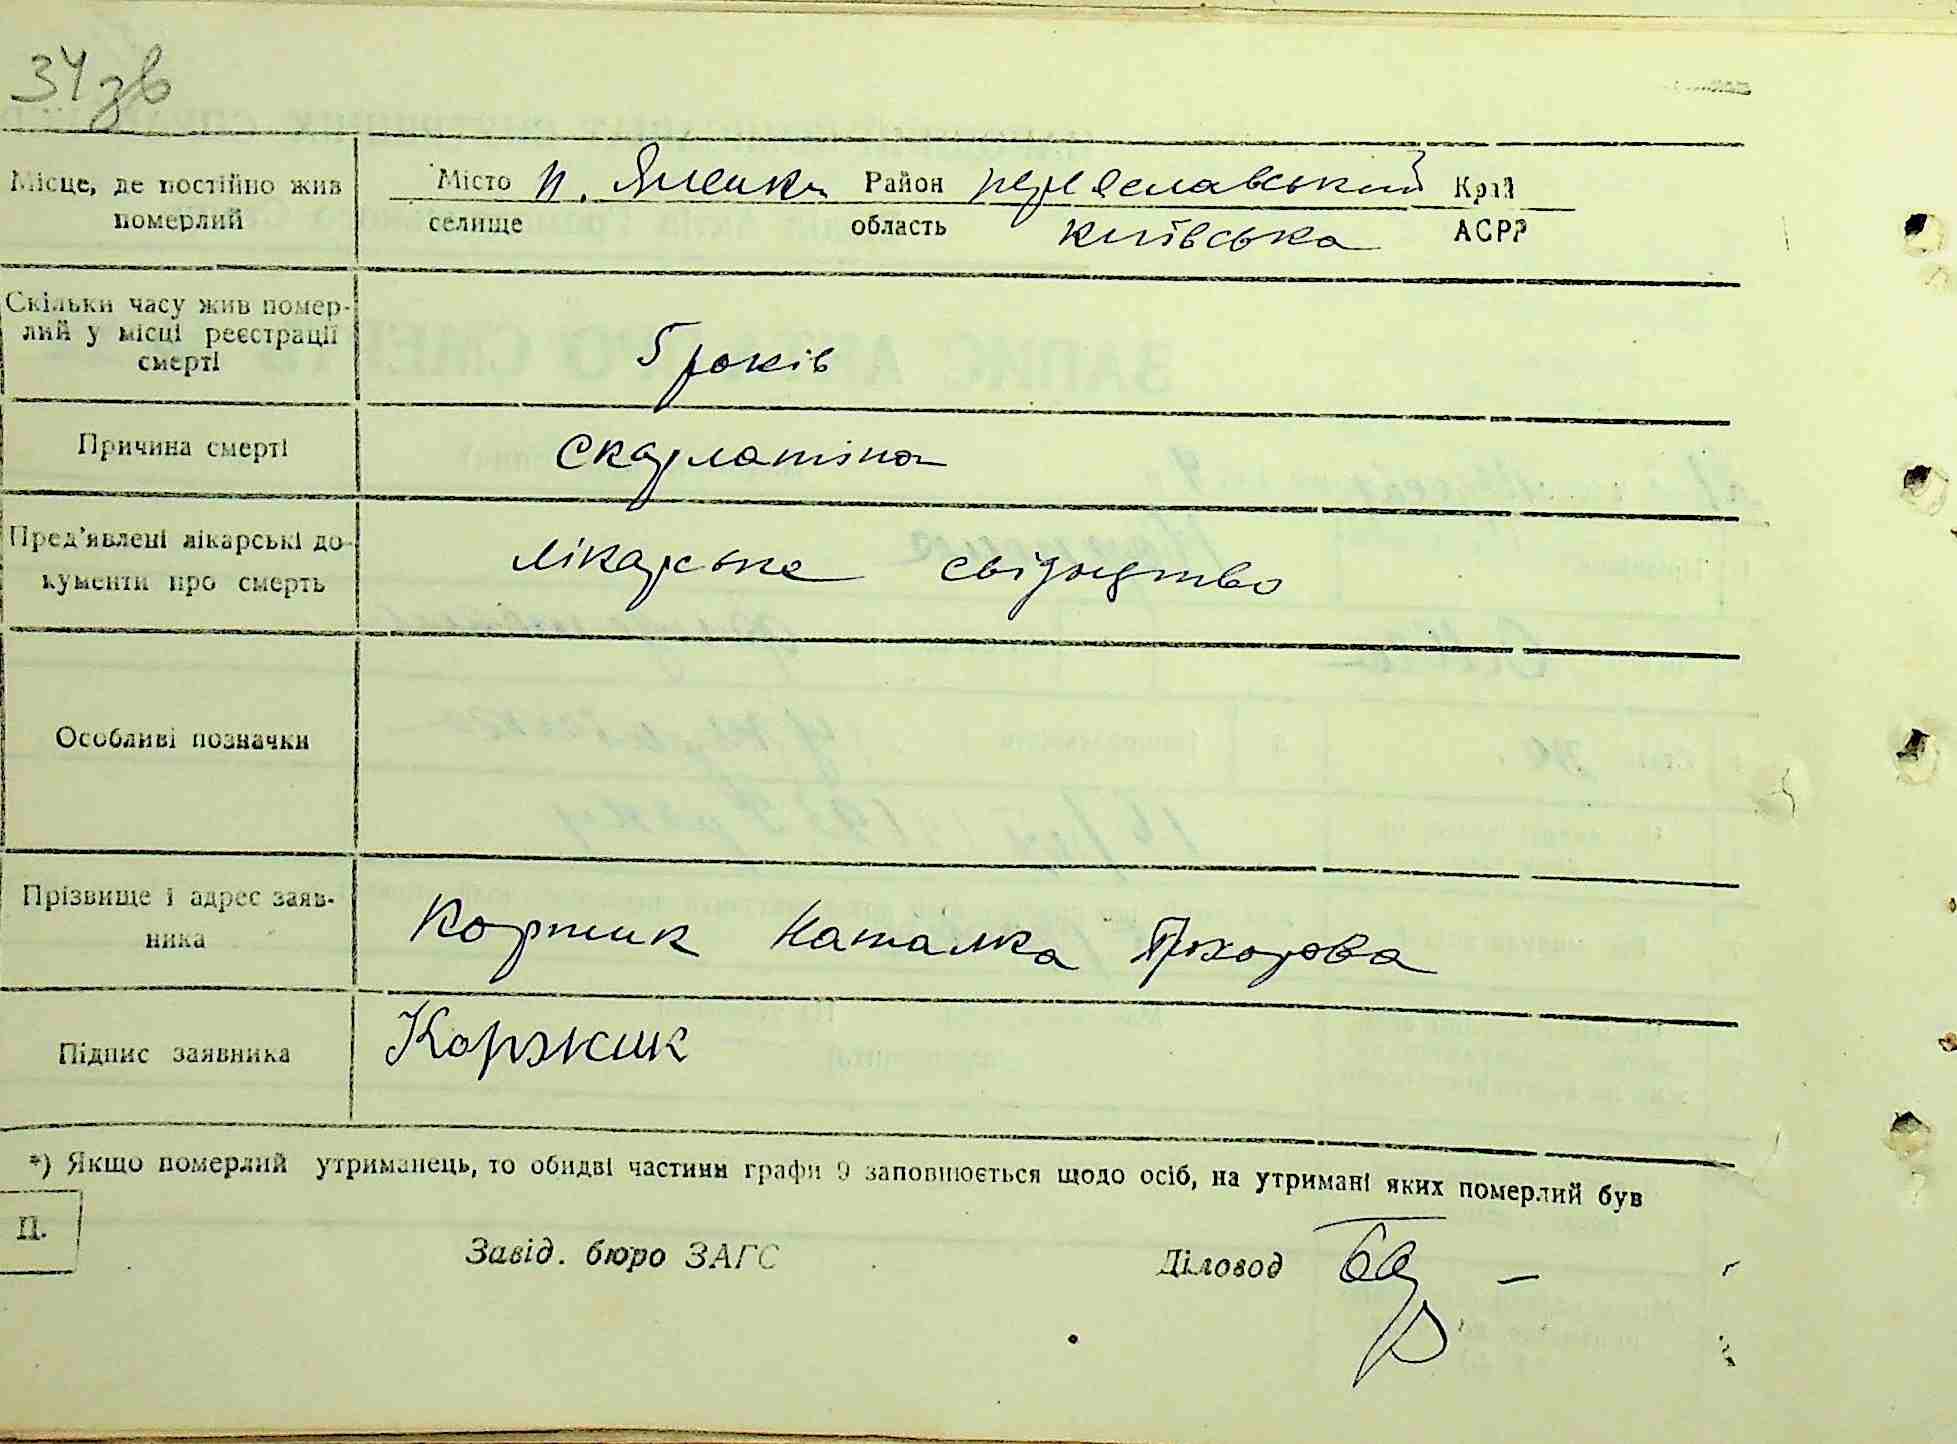 34 зв
Місце, де постійно жив померлий
Місто п. Яшники Район переяславський Край
селище область київська АСРР
Скільки часу жив помер-
лий у місці реєстрації
смерті
5 років
Причина смерті
скарлатіна
Пред'явлені лікарські до-
кументи про смерть
лікарське свідоцтво
Особливі позначки
Прізвище і адрес заяв-
ника
Коржик Наталка Прохорова
Підпис заявника
Коржик
*) Якщо померлий утриманець, то обидві частини графи 9 заповнюється щодо осіб, на утримані яких померлий був
П.
Завід. бюро ЗАГС
Діловод